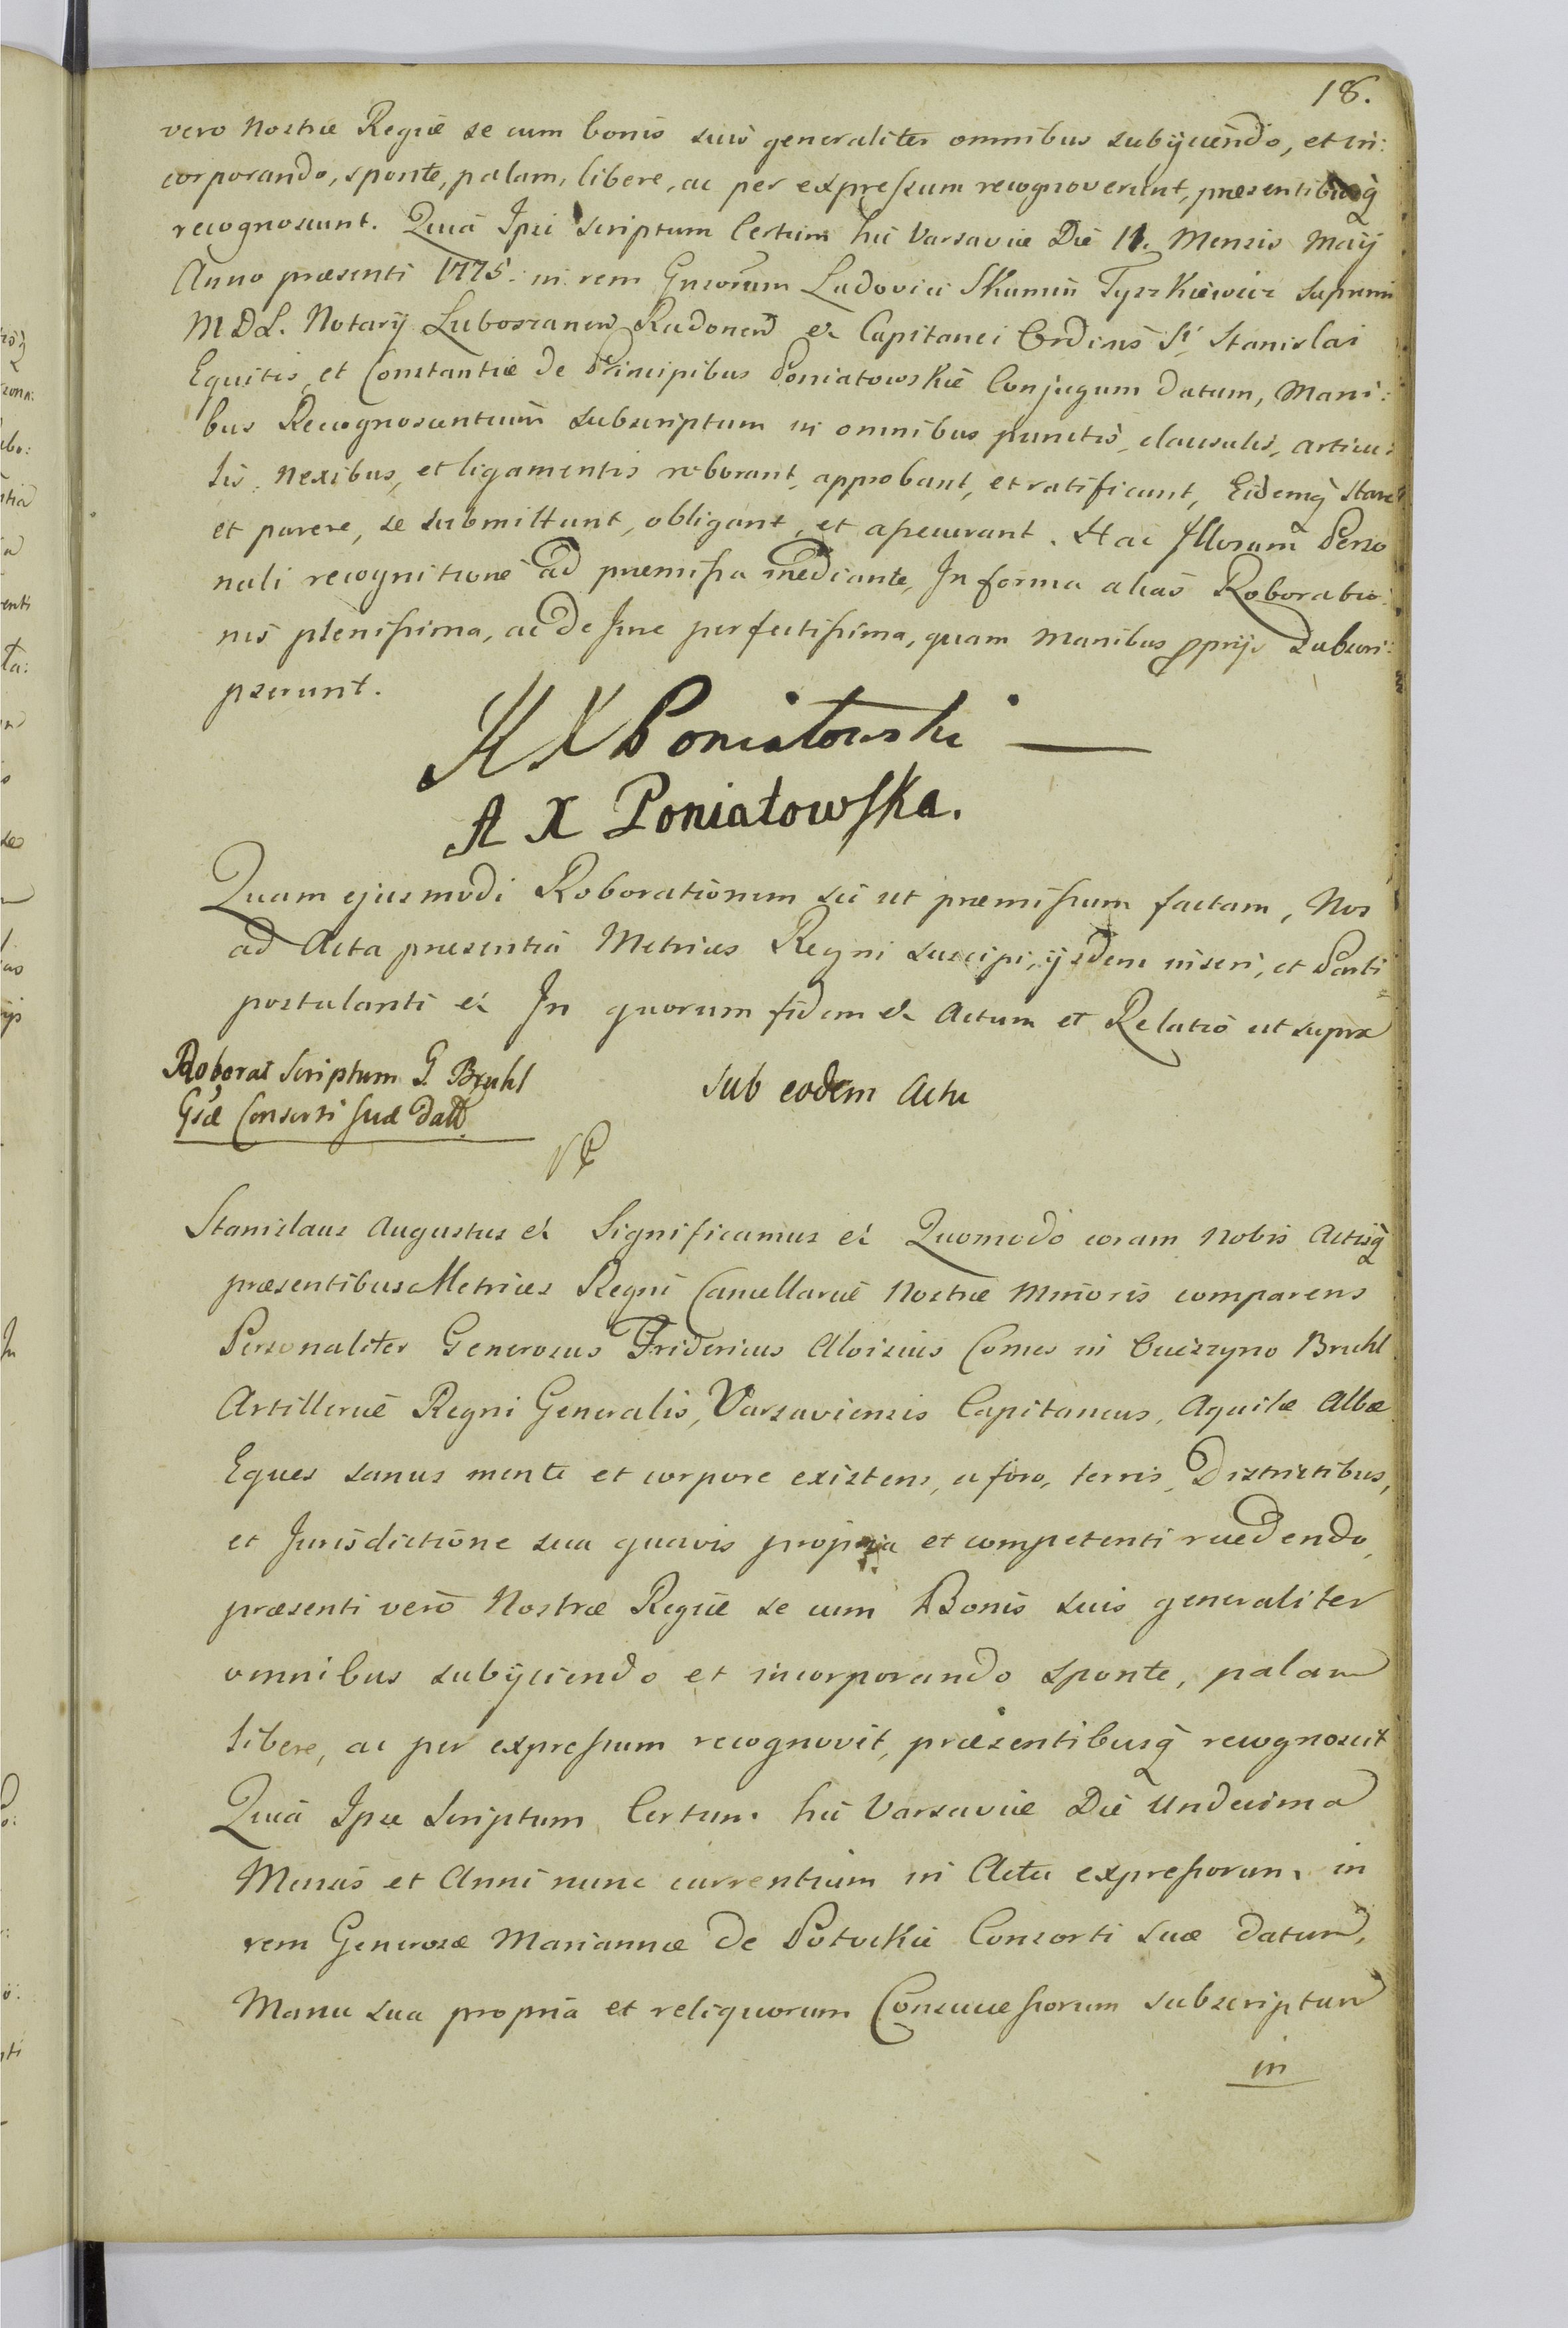 18.
vero Nostræ Regiæ se cum bonis suis generaliter omnibus subijciendo, et in:
corporando, sponte, palam, libere, ac per expressum recognoverunt, præsentibusq̃
recognoscunt. Quia Ipsi Scriptum Certum hic Varsaviæ Die 11. Mensis Maij
Anno præsenti 1775. in rem Gnsorum Ludovici Skumin Tyszkiewicz Supremi
M D L. Notarij Luboszanen Radonen & Capitanei Ordinis Sti Stanislai
Equitis, et Constantiæ de Principibus Poniatowskie Conjugum datum, Mani:
bus Recognoscentium subscriptum in omnibus punctis, clausulis, articu:
lis, nexibus, et ligamentis roborant, approbant, et ratificant, Eidemq̃ stare
et parere, se submittunt, obligant, et assecurant. Hac Illorum Perso
nali recognitione ad præmissa mediante, In forma alias Roboratio
nis plenissima, ac de Jure perfectissima, quam Manibus pprijs Subscri:
pserunt.
K X Poniatowski
A X Poniatowska.
Quam ejusmodi Roborationem sic ut præmissum factam, Nos
ad Acta præsentia Metrices Regni suscipi, ijsdem inseri, et Parti
postulanti & In quorum fidem & Actum et Relatio ut supra
Roborat Scriptum G. Bruhl
Gsæ Consorti suæ datt.
sub eodem Actu
Stanislaus Augustus & Significamus & Quomodo coram Nobis Actisq̃
præsentibus Metrices Regni Cancellariæ Nostræ Minoris comparens
Personaliter Generosus Fridericus Aloisius Comes in Ocieszyno Bruhl
Artilleriæ Regni Generalis, Varsaviensis Capitaneus, Aquilæ Albæ
Eques sanus mente et corpore existens, a foro, terris, Districtibus,
et Jurisdictione sua quavis propria et competenti recedendo,
præsenti vero Nostræ Regiæ se cum Bonis suis generaliter
omnibus subijciendo et incorporando sponte, palam
libere, ac per expressum recognovit, præsentibusq̃ recognoscit
Quia Ipse Scriptum Certum hic Varsaviæ Die Undecima
Mensis et Anni nunc currentium in Actu expressorum, in
rem Generosæ Mariannæ de Potockie Consorti suæ datum,
Manu sua propria et reliquorum Consuccessorum subscriptum
in